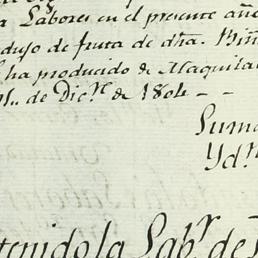 a Labores en el presente año
dujo de fruta de dha. Viñ
l ha producido de Maquila
de Dic.re de 1804
Suma
Yd.
tenido la Lab.r de